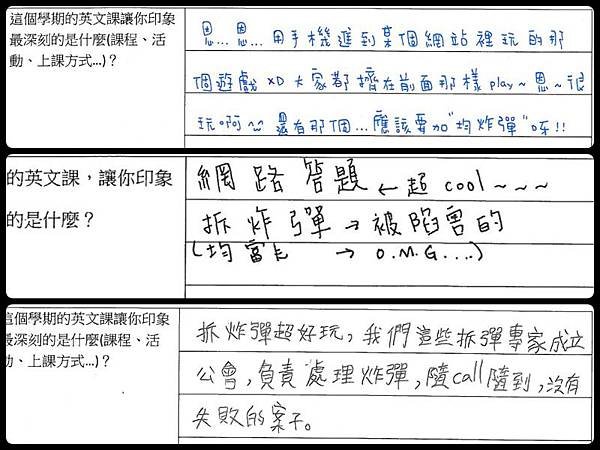 這個學期的英文課讓你印象
最深刻的是什麼(課程、活
動、上課方式…)？
恩…恩…用手機進到某個網站裡玩的那
個遊戲 XD 大家都擠在前面那樣 play~ 恩~很
玩啊 還有那個…應該要加"均炸彈"呀!!
的英文課，讓你印象
的是什麼？
網路答題 ← 超 cool~~~
拆炸彈 → 被陷害的
(均富卡 → O.M.G....)
這個學期的英文課讓你印象
最深刻的是什麼(課程、活
動、上課方式…)？
拆炸彈超好玩，我們這些拆彈專家成立
公會，負責處理炸彈，隨call隨到，沒有
失敗的案子。